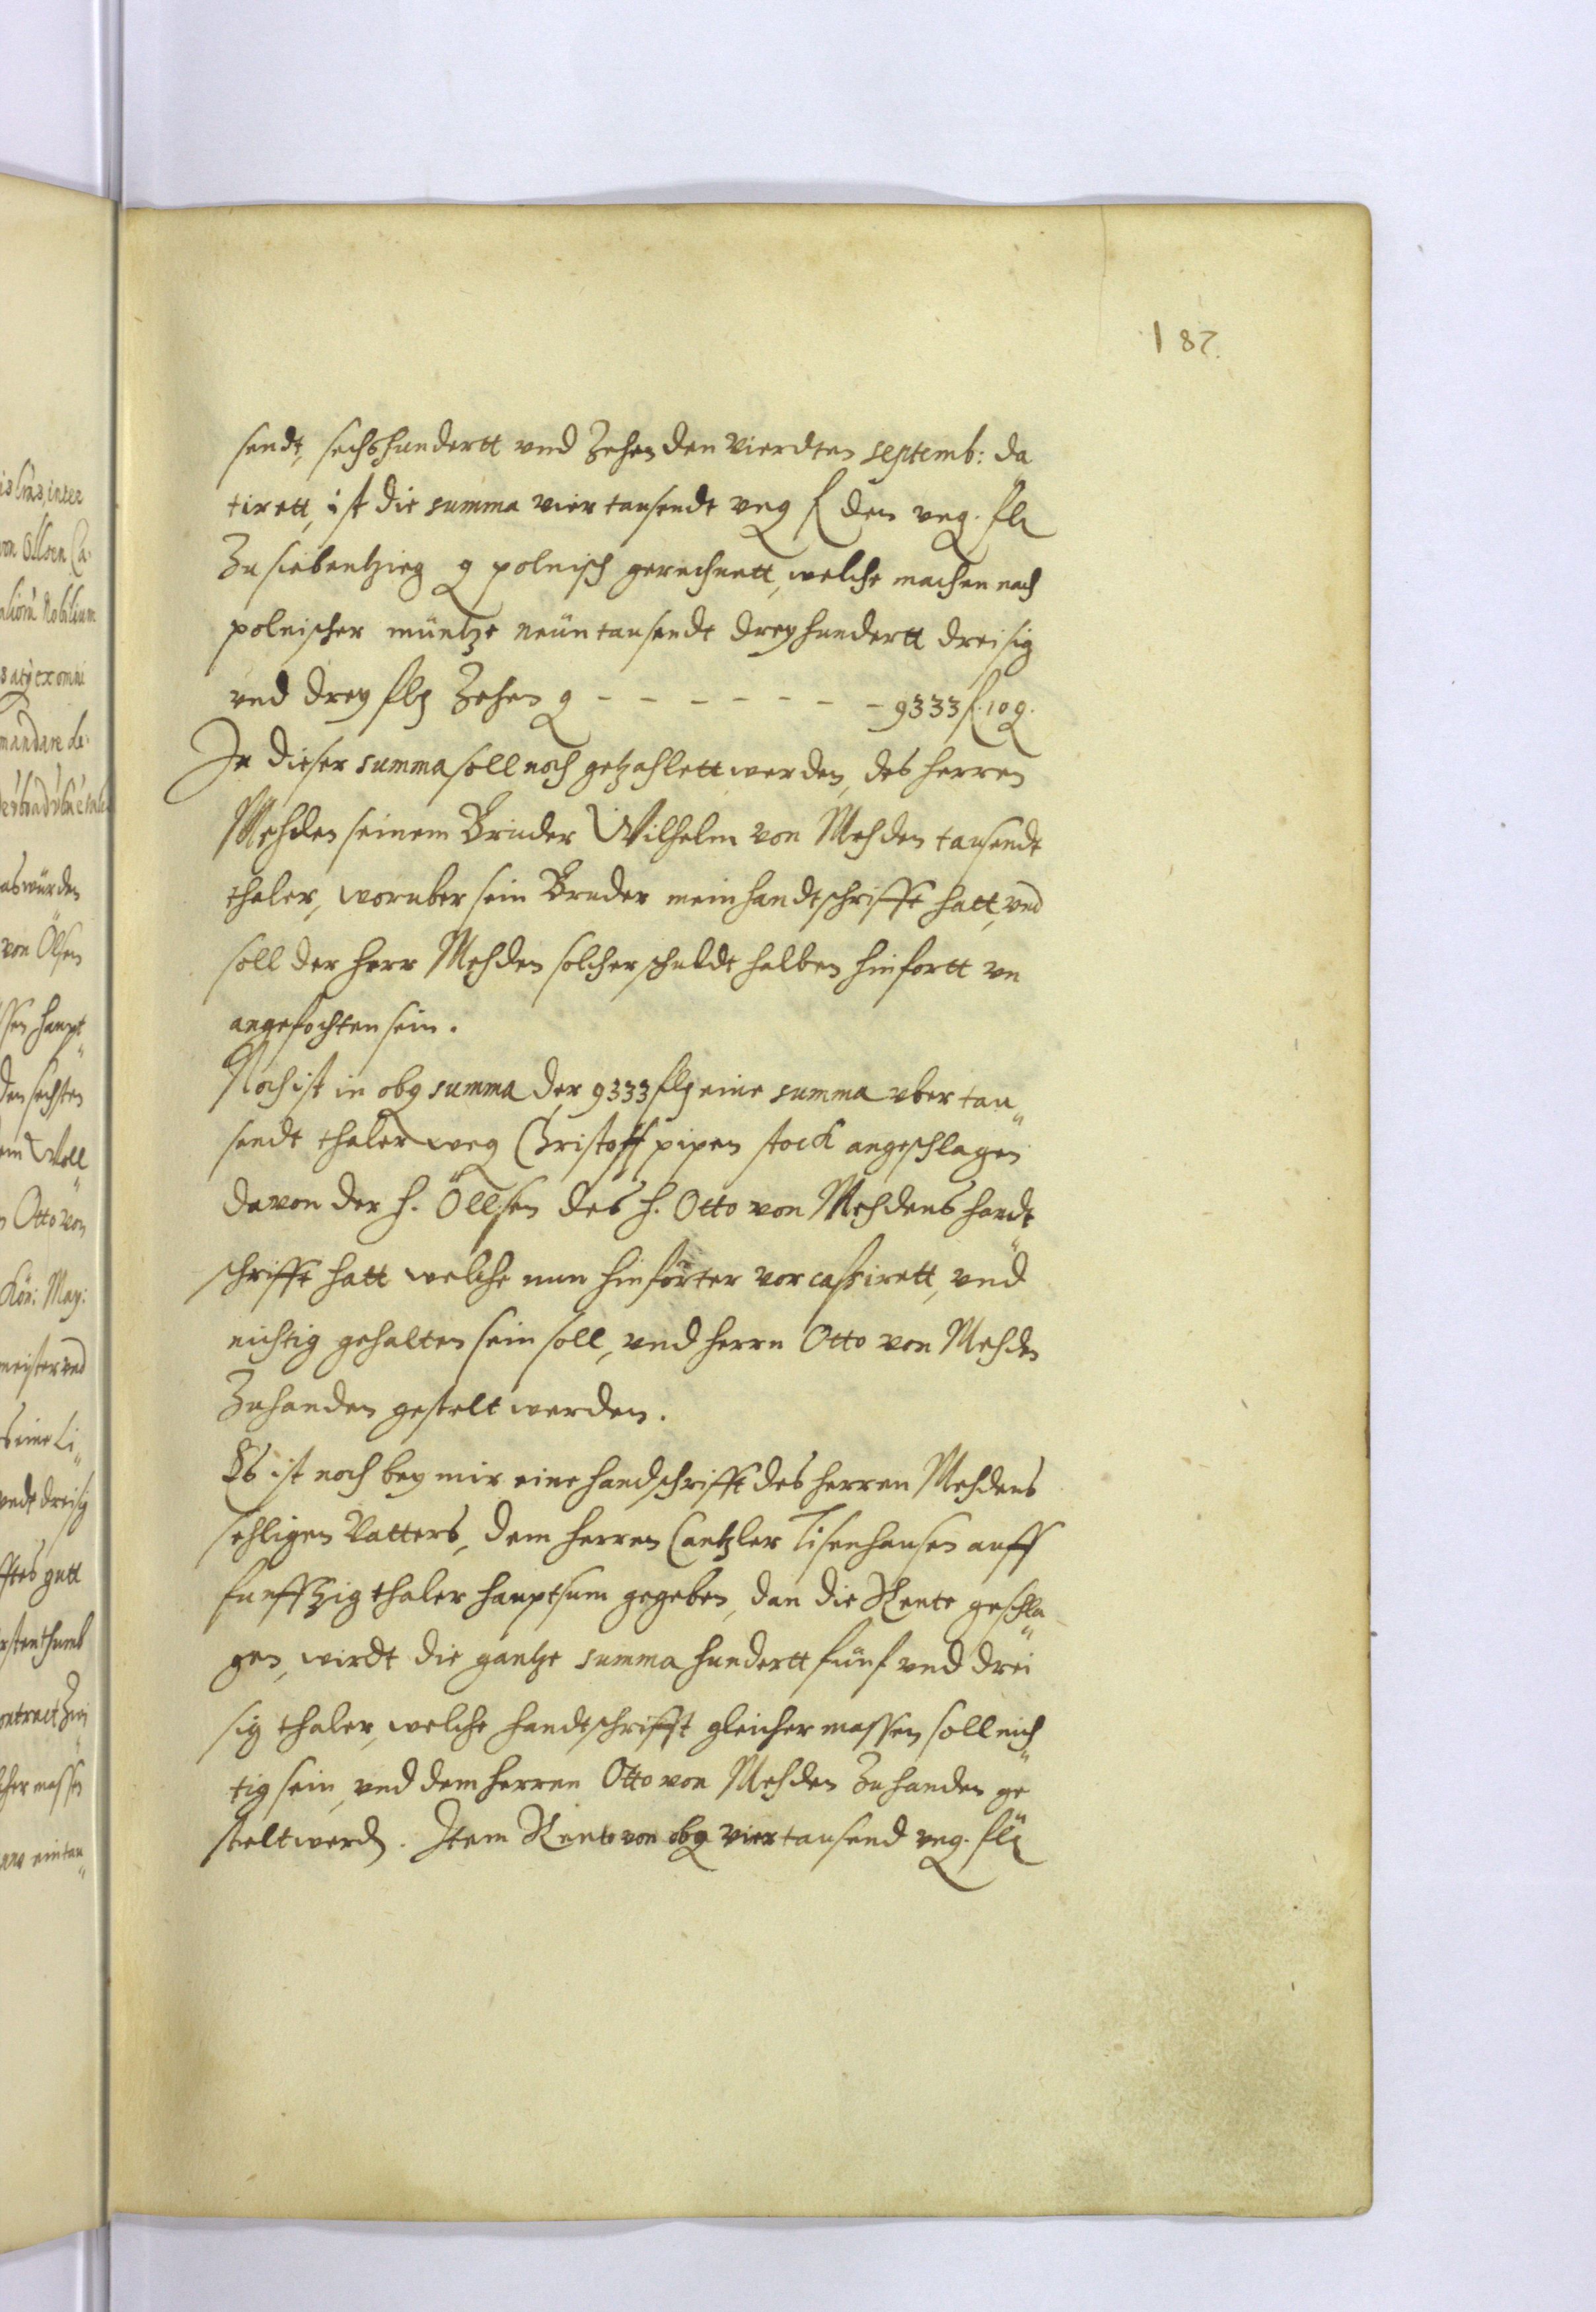 187.
sendt, sechshundertt vnd Zehen den Vierdten septemb: da
tirett, ist die summa vier tausendt vng f den vng. fl
Zu siebentzieg g polnisch gerechnett, welche machen nach
polnischer müntze neün tausendt dreyhundertt dreisig
vnd drey fl Zehen g - - - - - - - 9333 f. 10 g.
In dieser summa soll noch getzahlett werden, des herren
Mehden seinem Bruder Wilhelm von Mehden tausendt
thaler, woruber sein Bruder mein handtschrifft hatt, vnd
soll der herr Mehden solcher schuldt halben hinfortt vn
angefochten sein.
Noch ist in obg summa der 9333 fl eine summa vber tau„
sendt thaler weg Christoff pipen stock angeschlagen
davon der h. Öllsen des h. Otto von Mehdens handt„
schrifft hatt welche nun hinförter vor cassirett, vnd
nichtig gehalten sein soll, vnd herrn Otto von Mehden
Zuhanden gestelt werden.
Es ist noch bey mir eine handschrifft des herren Mehdens
sehligen Vatters, dem herren Cantzler Tisenhausen auff
funffzig thaler hauptsum gegeben, dan die Rente geschla„
gen, wirdt die gantze summa hundertt fünf vnd drei
sig thaler, welche handtschrifft gleicher massen soll nich„
tig sein, vnd dem herren Otto von Mehden Zuhanden ge„
stelt werd. Item Rente von obg vier tausend vng. fl
inter
von Öllsen Ca„
Nobilium
ex omni
mandare de„
würden
von Ölsen
haupt„
den sechsten
Woll„
Otto von
Kön: May:
meister vnd
eine Li„
dreisig
gutt
contract Zwi„
massen
ein tau„